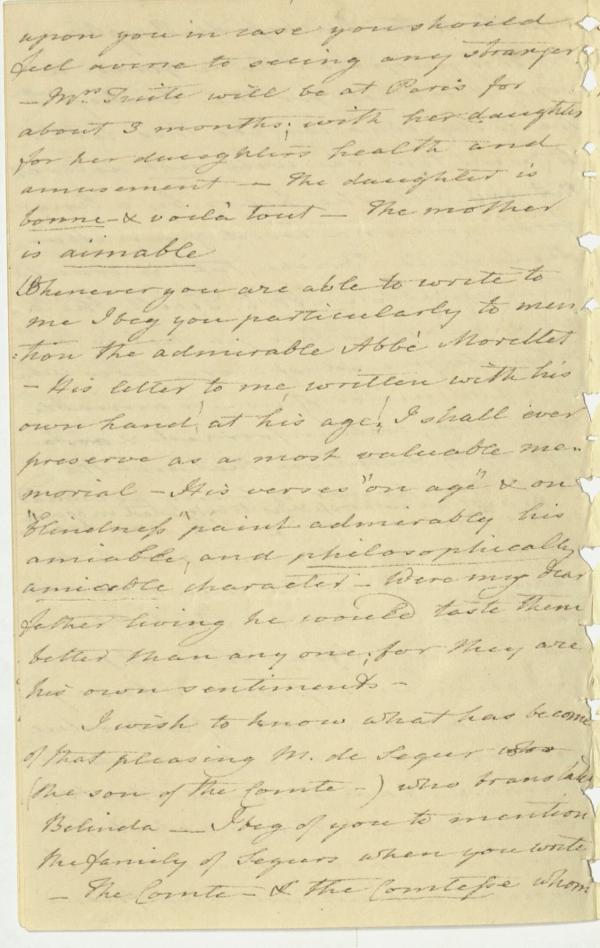 upon you in case you should
feel averse to seeing any stranger
— Mrs. Tuite will be at Paris for
about 3 months; with her daughter
for her daughters health and
amusement — The daughter is
bonne — & voilà tout — The mother
is aimable
Whenever you are able to write to
me I beg you particularly to men
:tion the admirable Abbé Morellet
— His letter to me written with his
own hand! at his age! I shall ever
preserve as a most valuable me-
morial — His verses "on age" & on
"blindness" paint admirably his
amiable, and philosophically
amiable character — Were my dear
father living he would taste them
better than any one; for they are
his own sentiments —
I wish to know what has become
of that pleasing M. de Segur who
(the son of the Comte —) who translated
Belinda — I beg of you to mention
the family of Segurs when you write
— The Comte — & the Comtesse whom